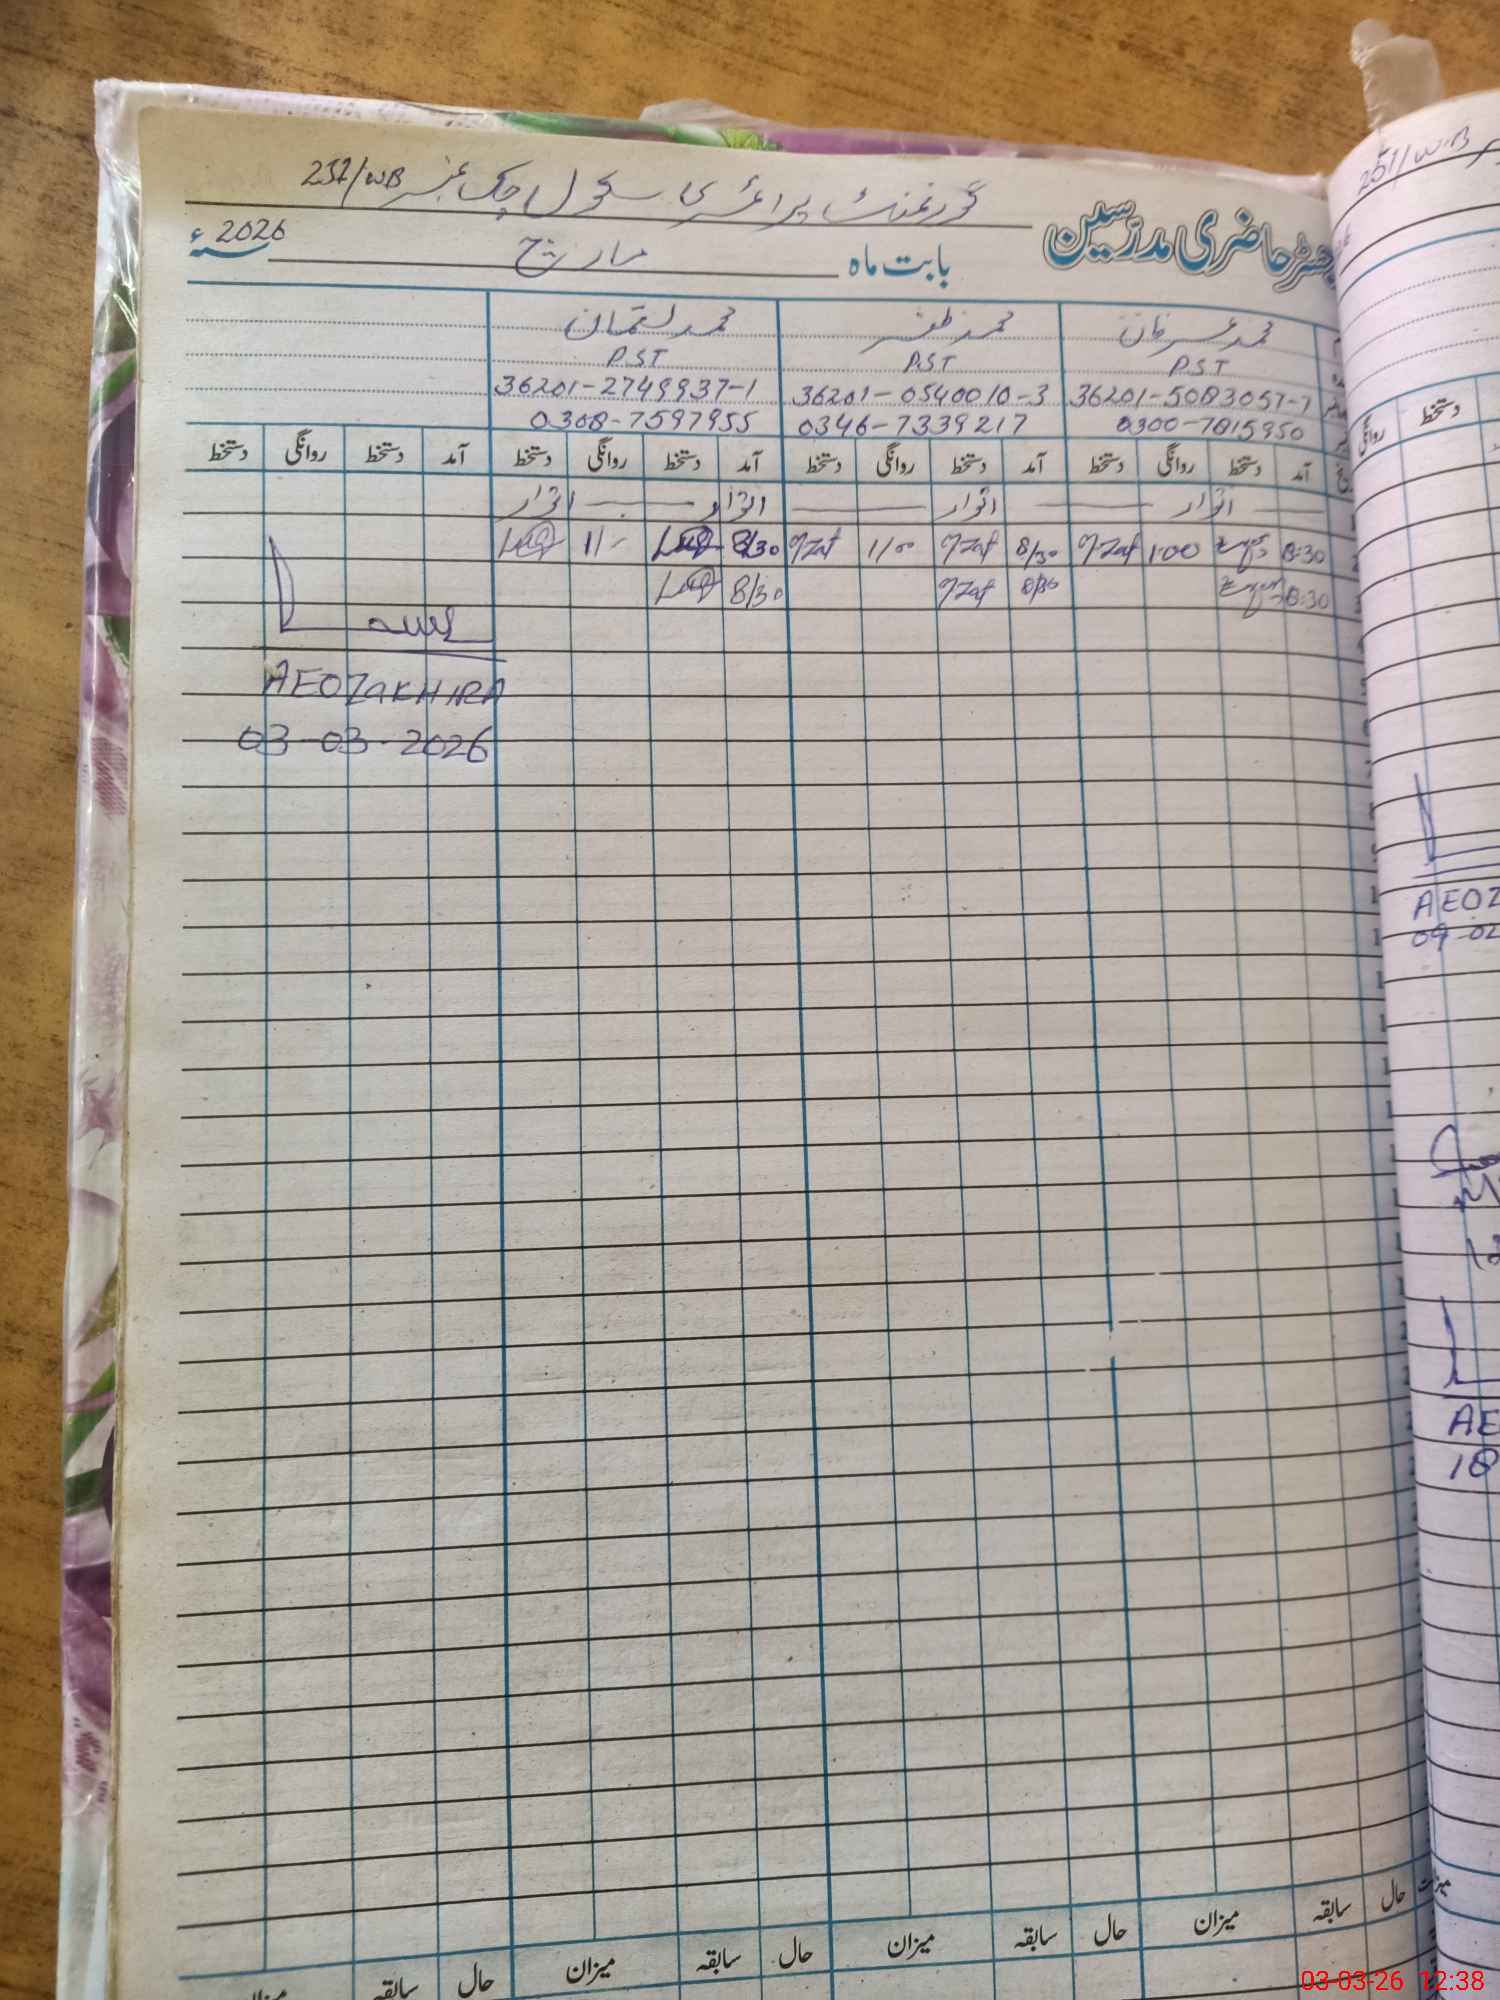 گورنمنٹ پرائمری سکول چک نمبر 251/WB
رجسٹر حاضری مدرسین
بابت ماہ مارچ 2026ء
محمد عمر خان محمد ظفر محمد لقمان
P.S.T P.S.T P.S.T
36201-5083057-7 36201-0540010-3 36201-2749937-1
0300-7815950 0346-7339217 0308-7597955
آمد دستخط روانگی دستخط آمد دستخط روانگی دستخط آمد دستخط روانگی دستخط آمد دستخط روانگی دستخط
اتوار اتوار اتوار اتوار
8:30 1:00 M.Zaf 8/30 M.Zaf 1/00 M.Zaf 8/30 1/-
8:30 8/30 M.Zaf 8/30
AEO ZAKHIRA
03-03-2026
حال سابقہ میزان حال سابقہ میزان حال سابقہ میزان حال سابقہ میزان
251/W.B
دستخط
روانگی
AEOZ
09-02
AE
18
03-03-26 12:38